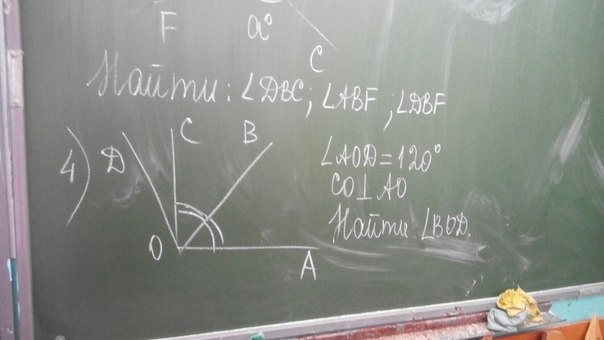 F α° C
Найти: ∠DBC; ∠ABF; ∠DBF
4) D C B ∠AOD = 120°
CO⊥AO
Найти ∠BOD.
O A